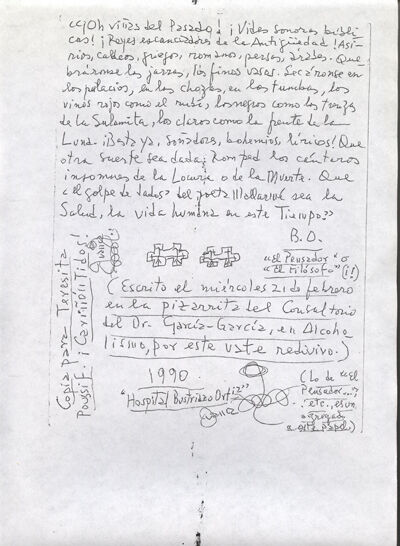 "¡Oh viñas del Pasado! ¡Vides sonoras bíbli-
cas! ¡Reyes escanciadores de la Antigüedad! Así-
rios, caldeos, griegos, romanos, persas, árabes. Que-
bráronse las jarras, los finos vasos. Secáronse en
los palacios, en las chozas, en las tumbas, los
vinos rojos como el rubí, los negros como las trenzas
de la Sulamita, los claros como la frente de la
Luna. ¡Basta ya, soñadores, bohemios, líricos! Que
otra suerte sea dada; Romped los cántaros
insomnes de la Locura o de la Muerte. Que
el "golpe de dados" del poeta Mallarmé sea la
Salud, la vida humana en este Tiempo?"
B.O.
"El Pensador" o
"El Filósofo" (¡!)
(Escrito el miércoles 21 de febrero
en la pizarrita del Consultorio
del Dr. García-García, en Alcoho-
lismo, por este vate redivivo.)
1990
"Hospital Bustriazo Ortiz"
(Lo de "El
Pensador..."
etc., es un
agregado
a este papel)
Copia para Teresita
Poussif. ¡Cariñón Tidos!